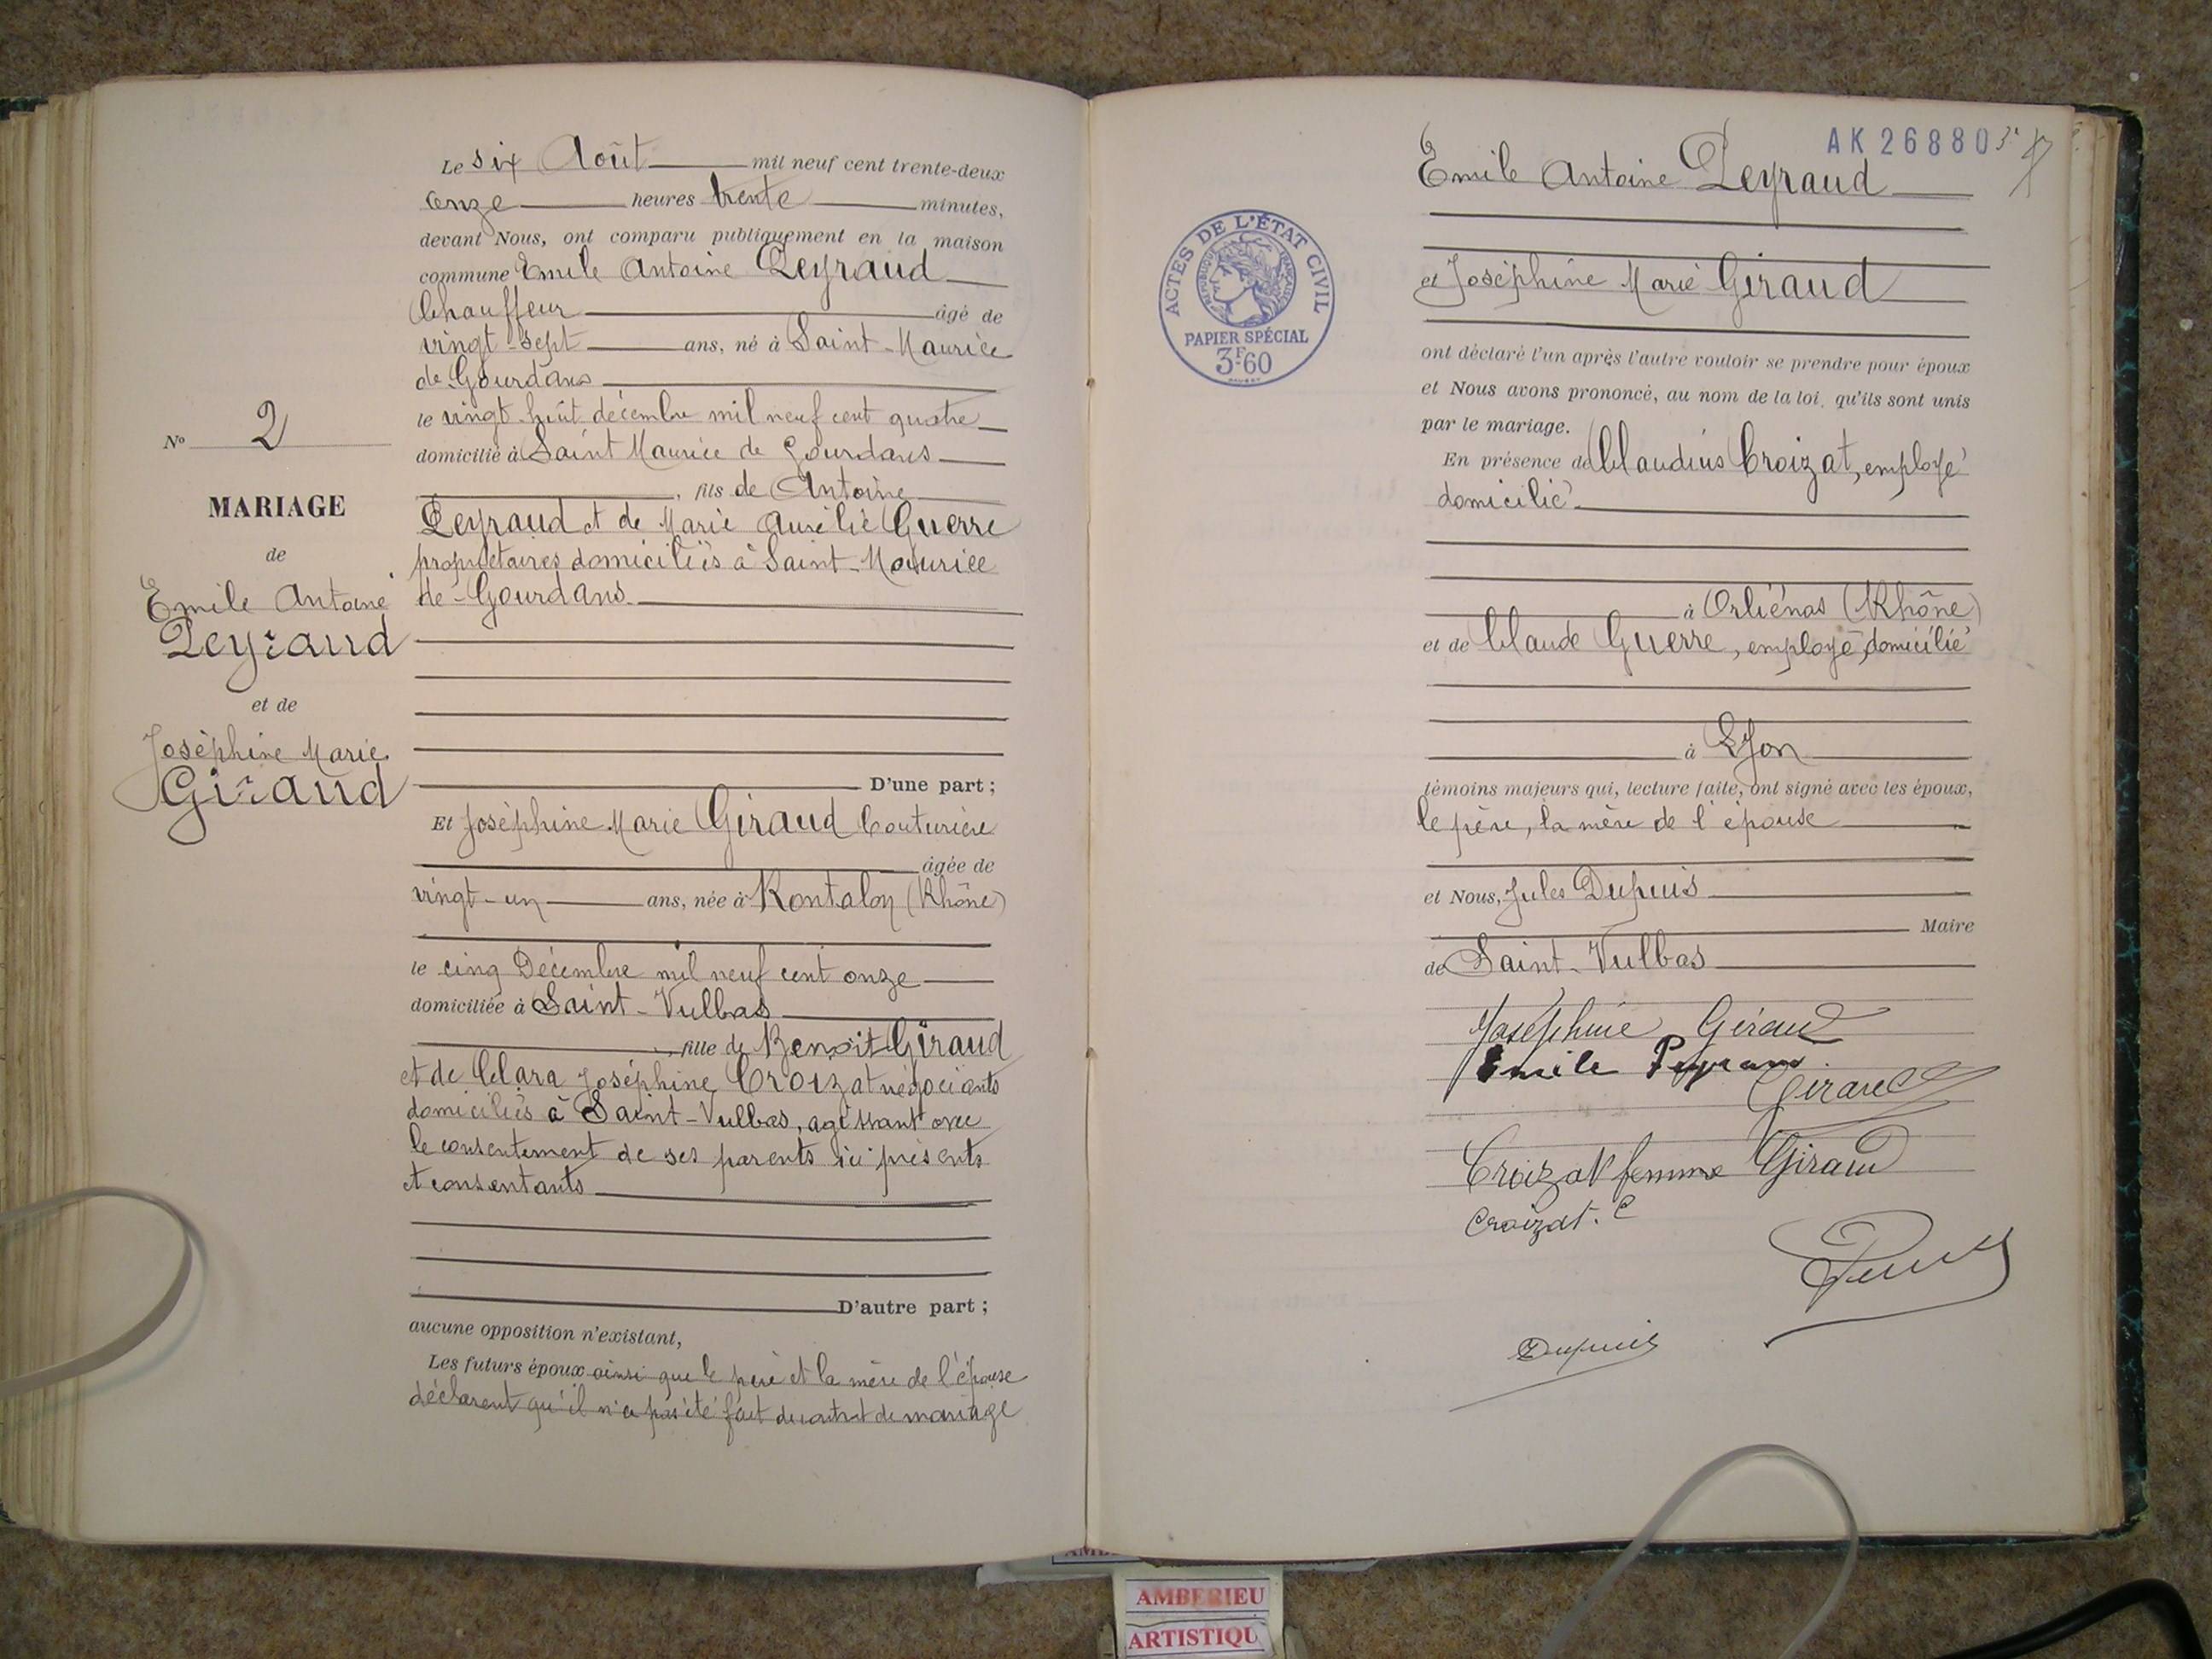 N° 2
MARIAGE
de
Emile Antoine
Peyraud
et de
Joséphine Marie
Giraud
Le six Août mil neuf cent trente-deux
onze heures trente minutes,
devant Nous, ont comparu publiquement en la maison
commune Emile Antoine Peyraud
Chauffeur âgé de
vingt-sept ans, né à Saint-Maurice
de Gourdans
le vingt-huit décembre mil neuf cent quatre
domicilié à Saint Maurice de Gourdans
, fils de Antoine
Peyraud et de Marie Aurélie Guerre
propriétaires domiciliés à Saint-Maurice
de-Gourdans.
D'une part ;
Et Joséphine Marie Giraud Couturière
âgée de
vingt-un ans, née à Rontalon (Rhône)
le cinq Décembre mil neuf cent onze
domiciliée à Saint-Vulbas
, fille de Benoît Giraud
et de Clara Joséphine Croizat négociants
domiciliés à Saint-Vulbas, agissant avec
le consentement de ses parents ici présents
et consentants
D'autre part ;
aucune opposition n'existant,
Les futurs époux ainsi que le père et la mère de l'épouse
déclarent qu'il n'a pas été fait de contrat de mariage
AK 26880
Emile Antoine Peyraud
et Joséphine Marie Giraud
ACTES DE L'ÉTAT CIVIL
RÉPUBLIQUE FRANÇAISE
PAPIER SPÉCIAL
3F60
ont déclaré l'un après l'autre vouloir se prendre pour époux
et Nous avons prononcé, au nom de la loi, qu'ils sont unis
par le mariage.
En présence de Claudius Croizat, employé
domicilié
à Orliénas (Rhône)
et de Claude Guerre, employé, domicilié
à Lyon
témoins majeurs qui, lecture faite, ont signé avec les époux,
le père, la mère de l'épouse
et Nous, Jules Dupuis
Maire
de Saint-Vulbas
Joséphine Giraud
Emile Peyraud
Giraud
Croizat femme Giraud
Croizat. C
Dupuis
AMBERIEU
ARTISTIQU